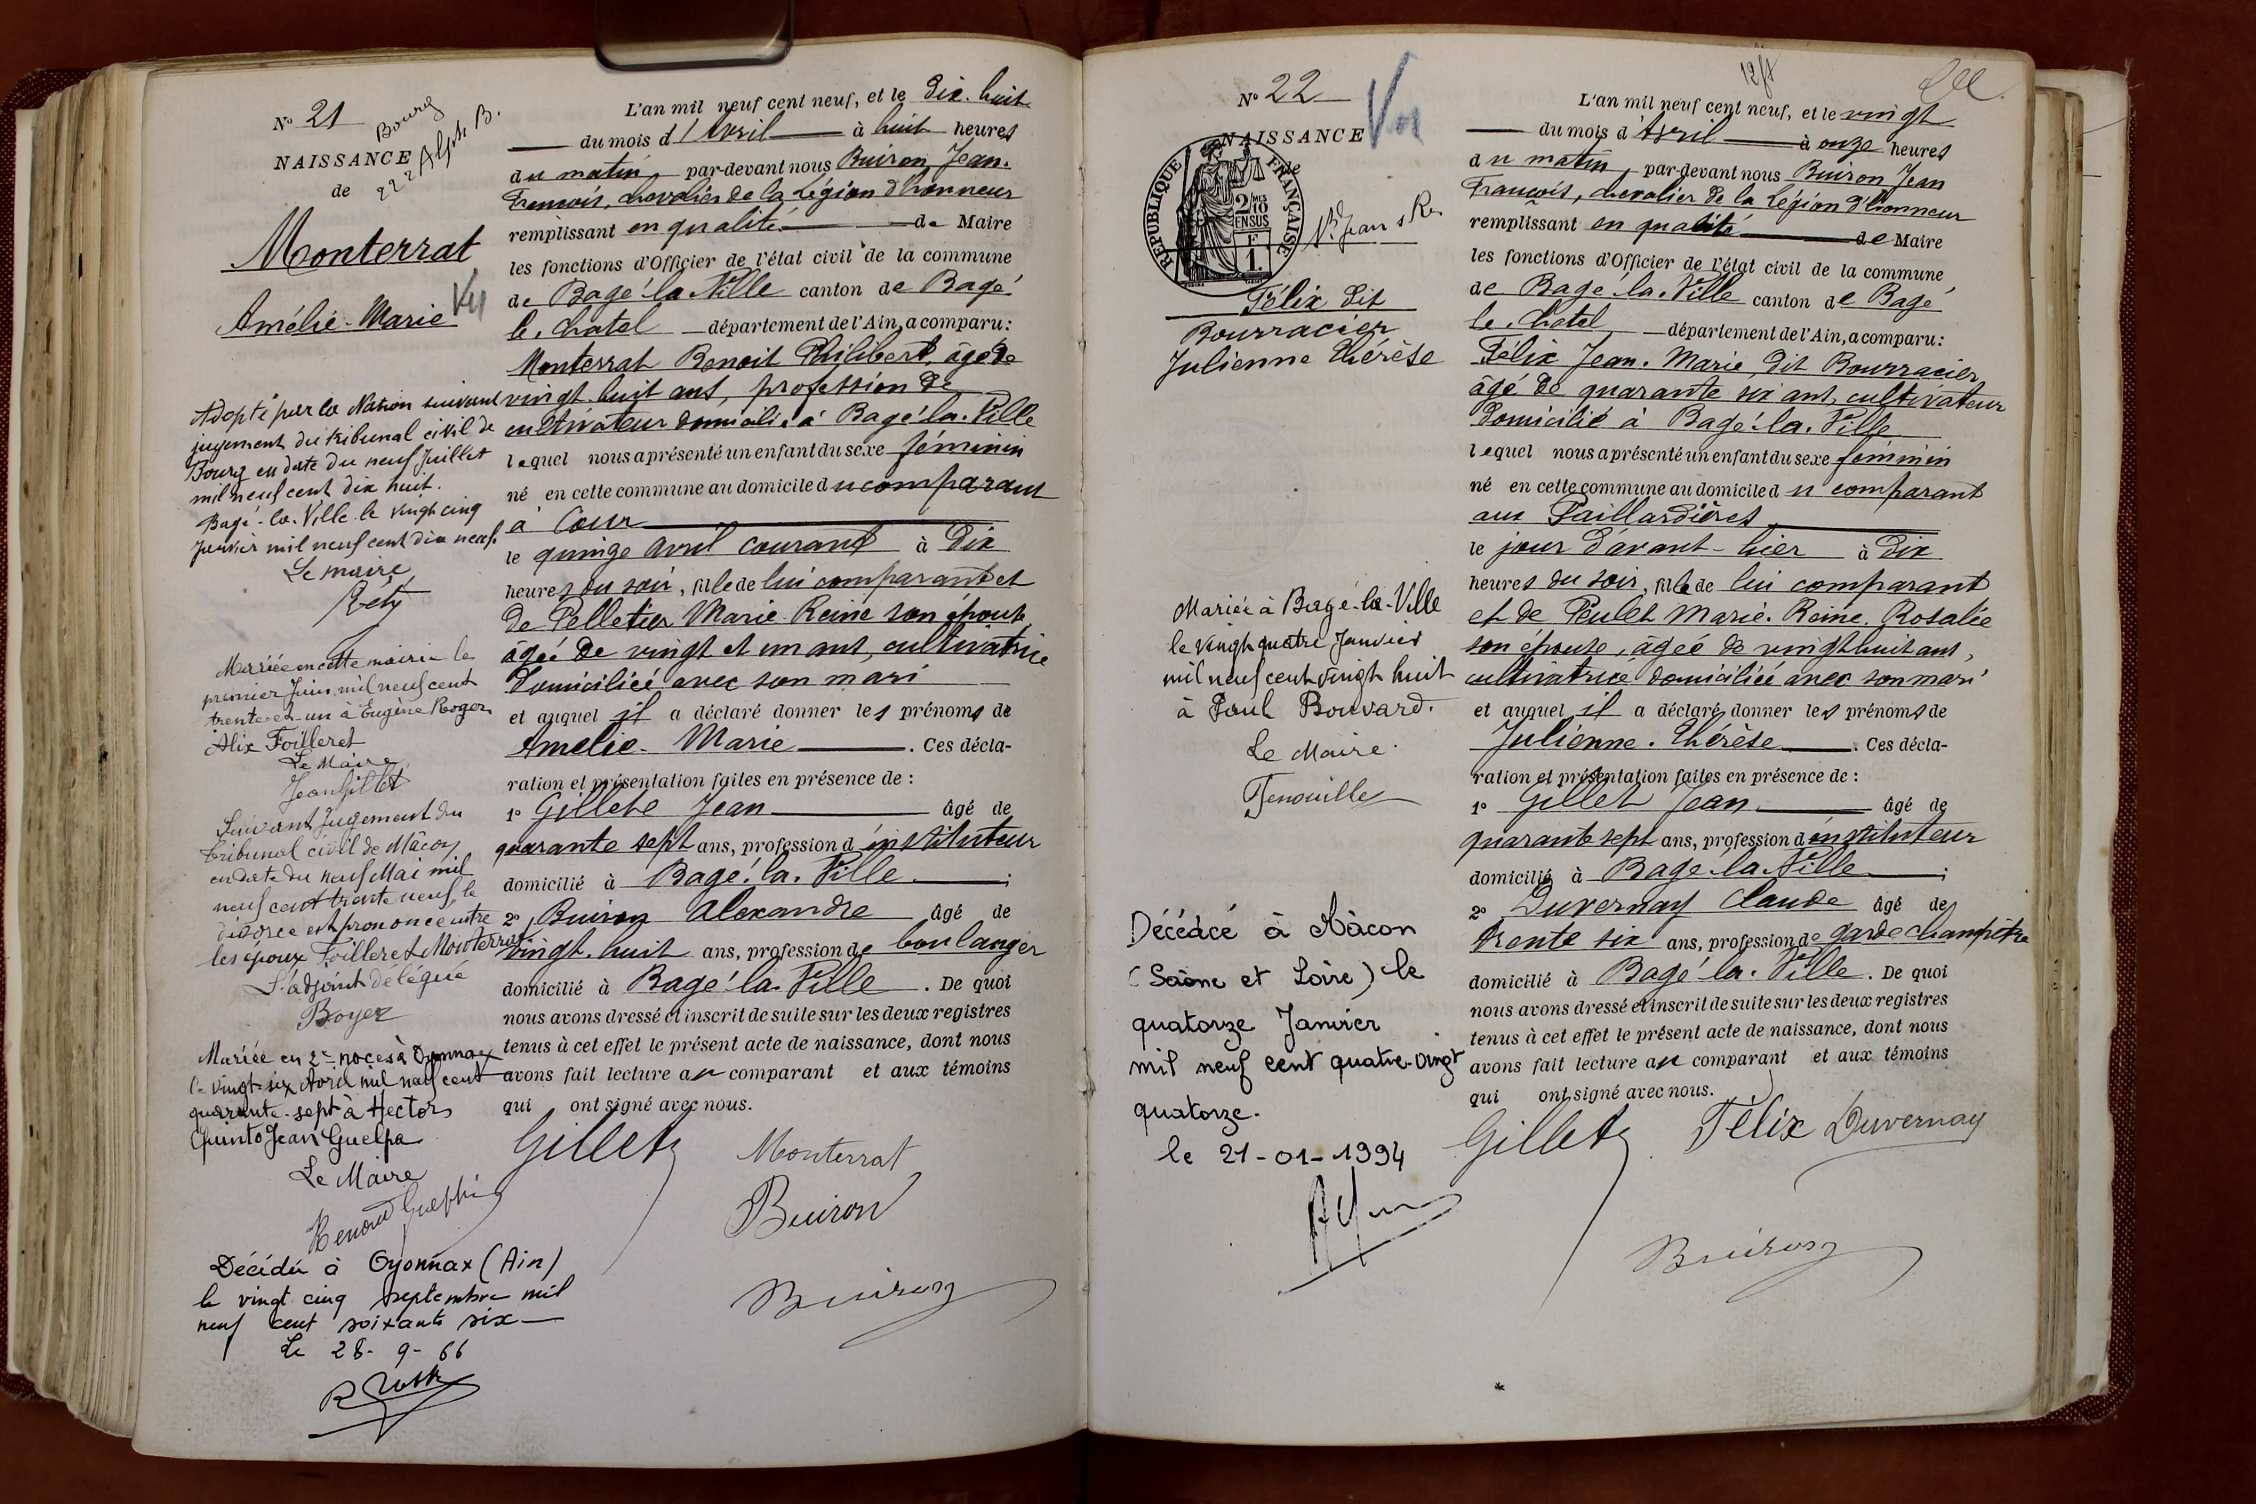 N° 21
Bourg
NAISSANCE
de
Monterrat
Amélie-Marie
Vu
Adopté par la Nation suivant
jugement du tribunal civil de
Bourg en date du neuf Juillet
mil neuf cent dix huit.
Bagé-la-Ville le vingt cinq
Janvier mil neuf cent dix neuf.
Le maire
Réty
Mariée en cette mairie le
premier Juin mil neuf cent
trente et un à Eugène Roger
Alix Foilleret
Le Maire
Jean Gillet
Suivant Jugement du
tribunal civil de Mâcon
en date du neuf Mai mil
neuf cent trente neuf, le
divorce est prononcé entre
les époux Foilleret Monterrat
L'adjoint délégué
Boyer
Mariée en 2e noces à Oyonnax
le vingt-six Avril mil neuf cent
quarante-sept à Hector
Quinto Jean Guelpa
Le Maire
Décédée à Oyonnax (Ain)
le vingt cinq septembre mil
neuf cent soixante six
Le 28-9-66
L'an mil neuf cent neuf, et le dix-huit
du mois d'Avril à huit heures
du matin par-devant nous Buiron, Jean-
François, chevalier de la Légion d'honneur
remplissant en qualité de Maire
les fonctions d'Officier de l'état civil de la commune
de Bagé-la-Ville canton de Bagé
le-Chatel département de l'Ain, a comparu:
Monterrat Benoit Philibert âgé de
vingt-huit ans, profession de
cultivateur domicilié à Bagé-la-Ville
lequel nous a présenté un enfant du sexe féminin
né en cette commune au domicile du comparant
à Cour
le quinze avril courant à dix
heures du soir, fille de lui comparant et
de Pelletier Marie-Reine son épouse,
âgée de vingt et un ans, cultivatrice
domiciliée avec son mari
et auquel il a déclaré donner les prénoms de
Amélie-Marie. Ces décla-
ration et présentation faites en présence de :
1° Gillet Jean âgé de
quarante sept ans, profession d'instituteur
domicilié à Bagé-la-Ville ;
2° Buiron Alexandre âgé de
vingt-huit ans, profession de boulanger
domicilié à Bagé-la-Ville. De quoi
nous avons dressé et inscrit de suite sur les deux registres
tenus à cet effet le présent acte de naissance, dont nous
avons fait lecture au comparant et aux témoins
qui ont signé avec nous.
Gillet
Monterrat
Buiron
Buiron
N° 22
Vu
NAISSANCE
de
REPUBLIQUE FRANÇAISE
2/10 EN SUS
F
1
Félix dit
Bourracier
Julienne Thérèse
Mariée à Bagé-la-Ville
le vingt quatre Janvier
mil neuf cent vingt huit
à Paul Bouvard.
Le Maire.
Décédée à Mâcon
(Saône et Loire) le
quatorze Janvier
mil neuf cent quatre-vingt
quatorze.
le 21-01-1994
L'an mil neuf cent neuf, et le vingt
du mois d'Avril à onze heures
du matin par-devant nous Buiron Jean
François, chevalier de la Légion d'honneur
remplissant en qualité de Maire
les fonctions d'Officier de l'état civil de la commune
de Bagé-la-Ville canton de Bagé
le-Chatel département de l'Ain, a comparu:
Félix Jean-Marie, dit Bourracier
âgé de quarante six ans, cultivateur
domicilié à Bagé-la-Ville
lequel nous a présenté un enfant du sexe féminin
né en cette commune au domicile du comparant
aux Paillardières
le jour d'avant-hier à dix
heures du soir, fille de lui comparant
et de Peulet Marie-Reine-Rosalie
son épouse, âgée de vingt huit ans,
cultivatrice domiciliée avec son mari
et auquel il a déclaré donner les prénoms de
Julienne-Thérèse. Ces décla-
ration et présentation faites en présence de :
1° Gillet Jean âgé de
quarante sept ans, profession d'instituteur
domicilié à Bagé-la-Ville ;
2° Duvernay Claude âgé de
trente six ans, profession de garde champêtre
domicilié à Bagé-la-Ville. De quoi
nous avons dressé et inscrit de suite sur les deux registres
tenus à cet effet le présent acte de naissance, dont nous
avons fait lecture au comparant et aux témoins
qui ont signé avec nous.
Gillet
Félix
Duvernay
Buiron